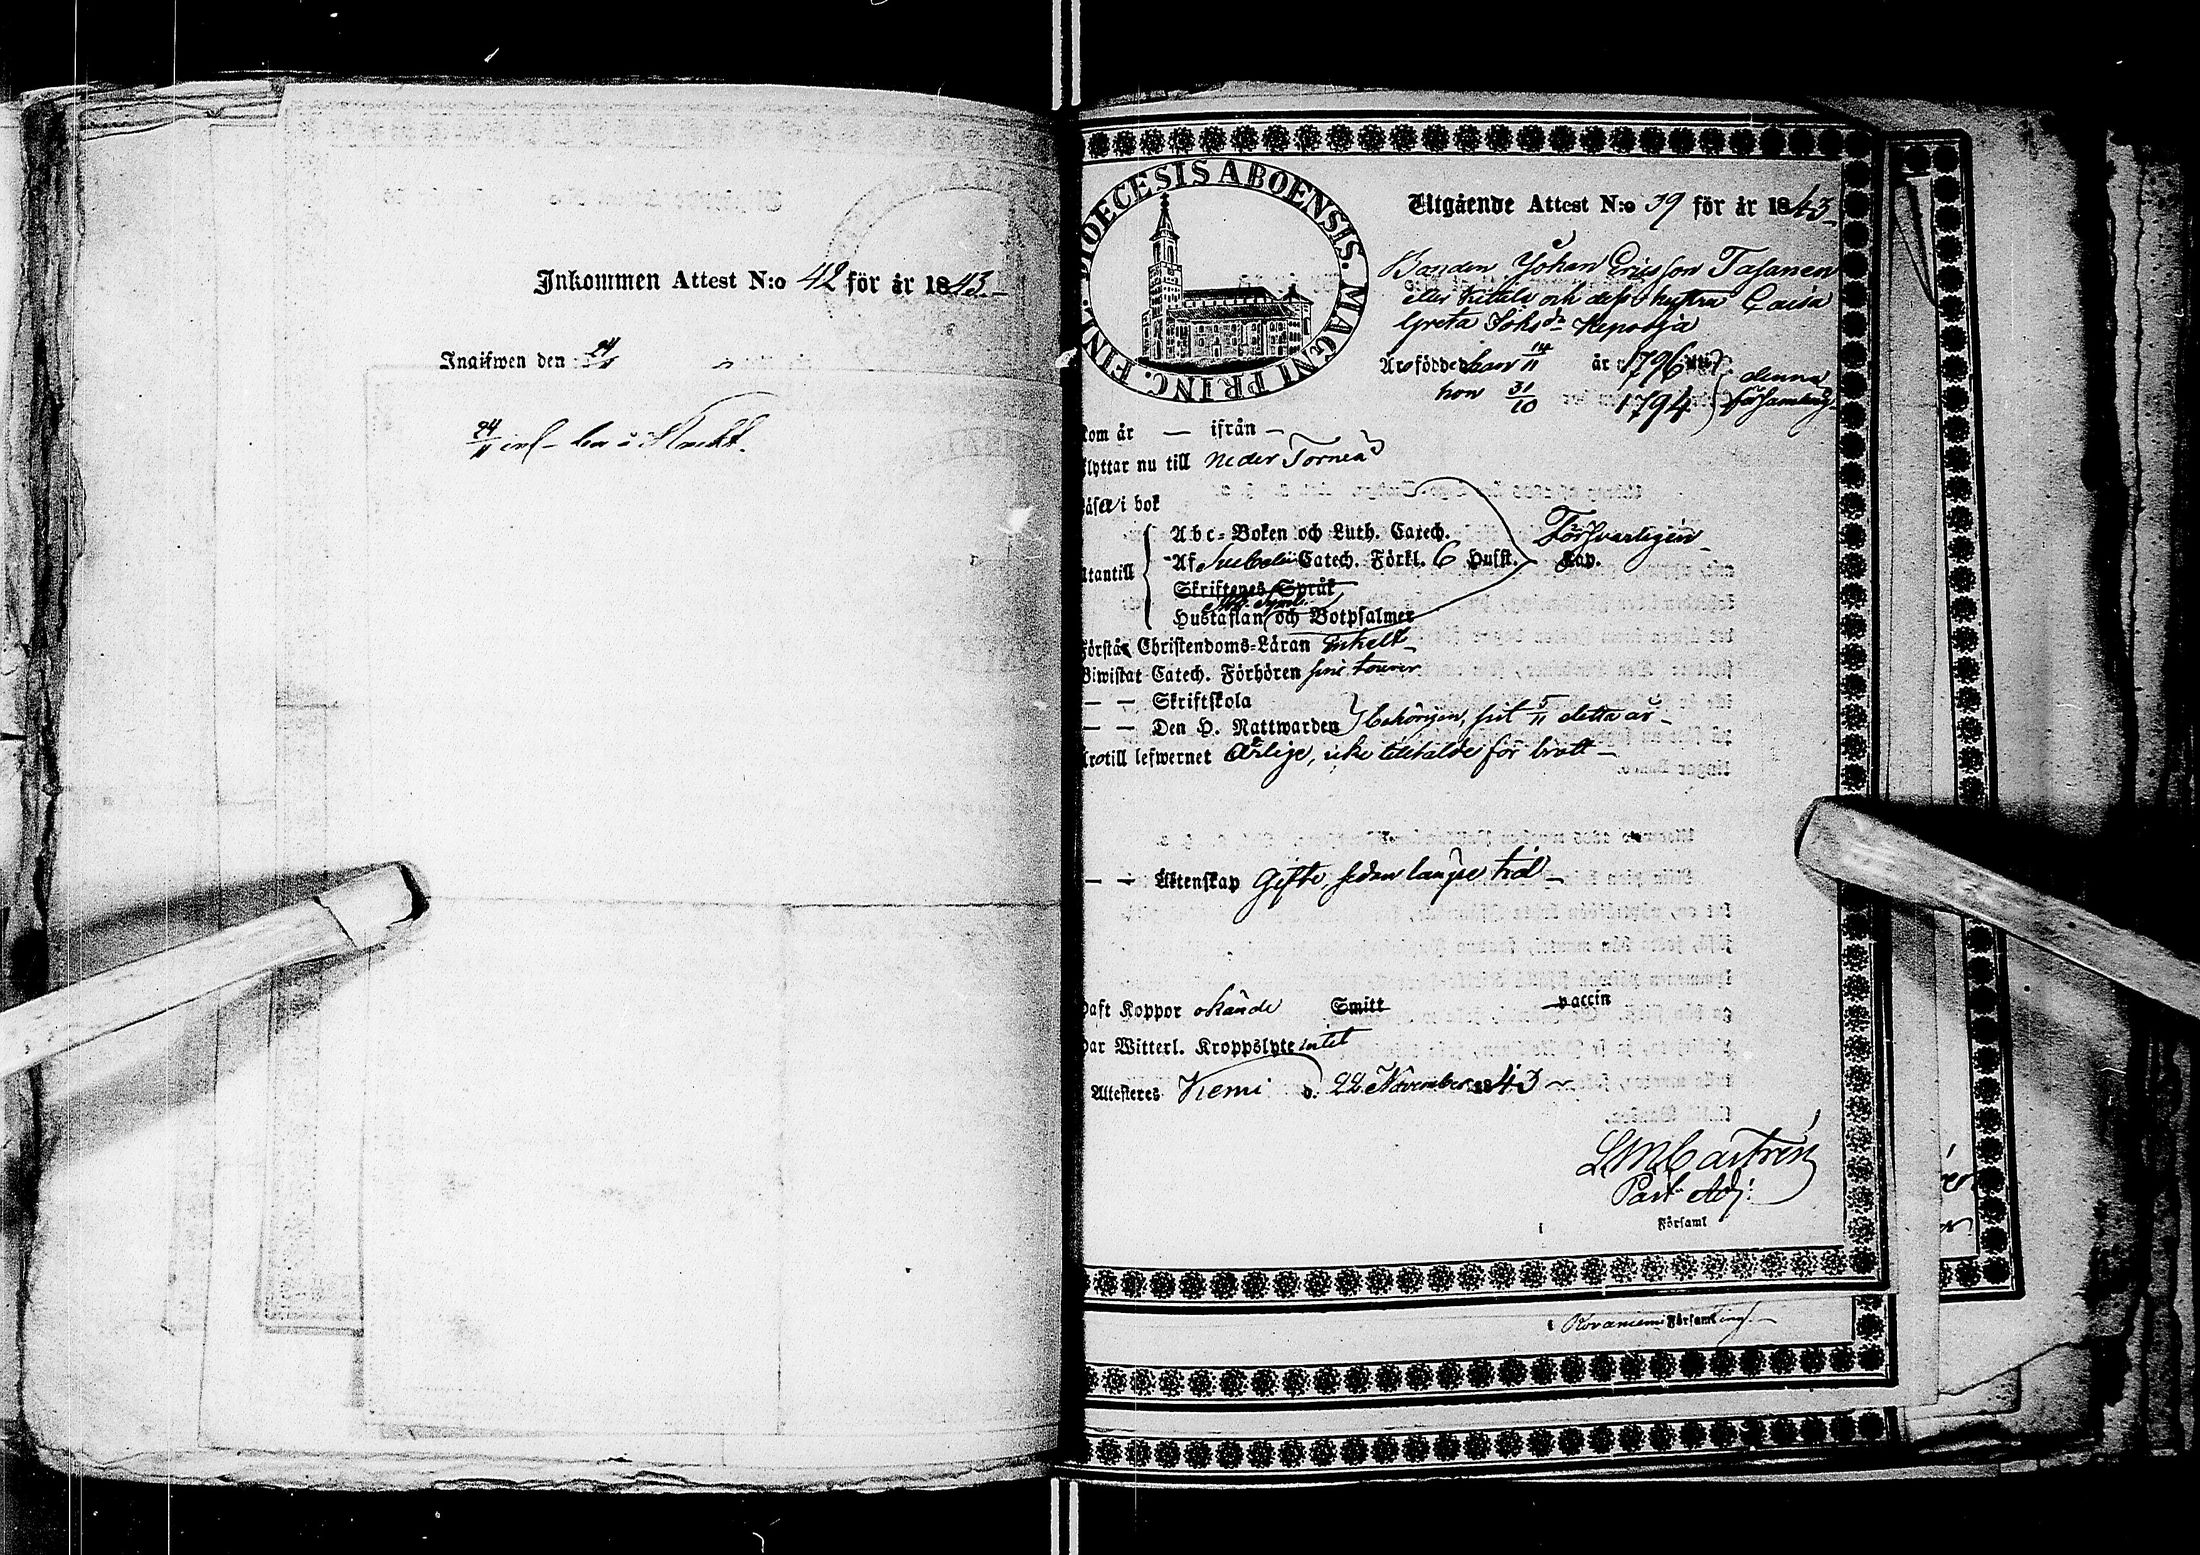 Inkommen Attest N:o 42 för år 1843.
Ingifwen den 24/11
24/11 inf
DIOECESIS ABOENSIS. MAGNI PRINC. FINL.
Utgående Attest N:o 39 för år 1843
Bonden Johan Ericsson Tasanen
eller Kittilä och dess hustru Caisa
Greta Johsdr Kepsoja
Äro födde han 14/11 år 1796 denna
hon 31/10 1794 församling
kom år — ifrån —
flyttar nu till Neder Torneå
Läser i bok
Abc-Boken och Luth. Catech. Försvarligen
utantill Af Svebelii Catech. Förkl. 6 Hufst. Kap.
Skriftenes Språk
Ath. Symb.
Hustaflan och Botpsalmer
Förstår Christendoms-Läran enkelt
Biwistat Catech. Förhören sine tourer
— — Skriftskola
— — Den H. Nattwarden behörigen, sist 5/11 detta år
Äro till lefwernet Ärlige, icke tilltalde för brott
— — Äktenskap Gifte, sedan längre tid
Haft Koppor okände Smitt vaccin
Har Witterl. Kroppslyte intet
Attesteres Kemi d. 22 November 1843
L M Castrén
Past. Adj:
i Församl
i Rovaniemi Församling.